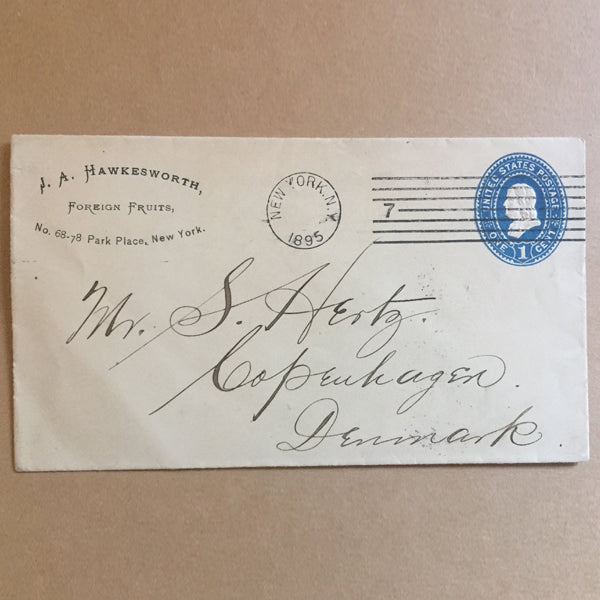 J. A. HAWKESWORTH,
FOREIGN FRUITS,
No. 68-78 Park Place, New York.
NEW YORK, N.Y.
1895
7
UNITED STATES POSTAGE
ONE 1 CENT
Mr. S. Hertz.
Copenhagen.
Denmark.